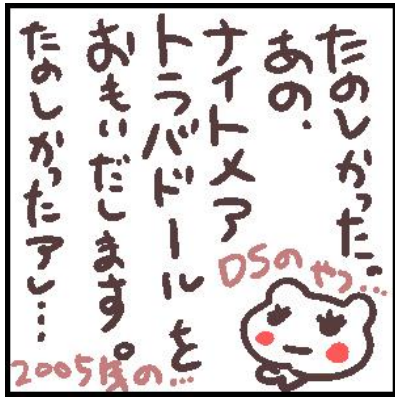 たのしかった。
あの、
ナイトメア
トラバドールを
おもいだします。
たのしかったアレ…
DSの
やつ…
2005年の…